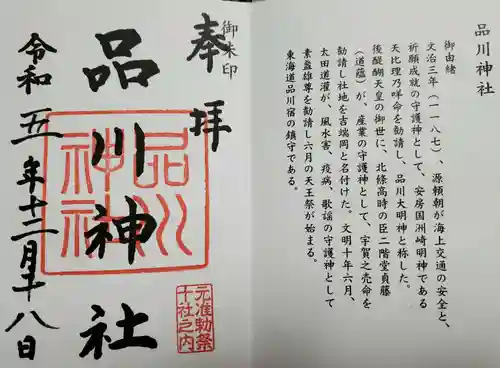 品川神社
御由緒
文治三年(一一八七)、源頼朝が海上交通の安全と、
祈願成就の守護神として、安房国洲崎明神である
天比理乃咩命を勧請し、品川大明神と称した。
後醍醐天皇の御世に、北條高時の臣二階堂貞藤
(道蘊)が、産業の守護神として、宇賀之売命を
勧請し社地を吉端岡と名付けた。文明十年六月、
太田道灌が、風水害、疫病、歌謡の守護神として
素盞雄尊を勧請し六月の天王祭が始まる。
東海道品川宿の鎮守である。
御朱印
奉拝
品川神社
品川
神社
元准勅祭
十社之内
令和五年十二月十八日